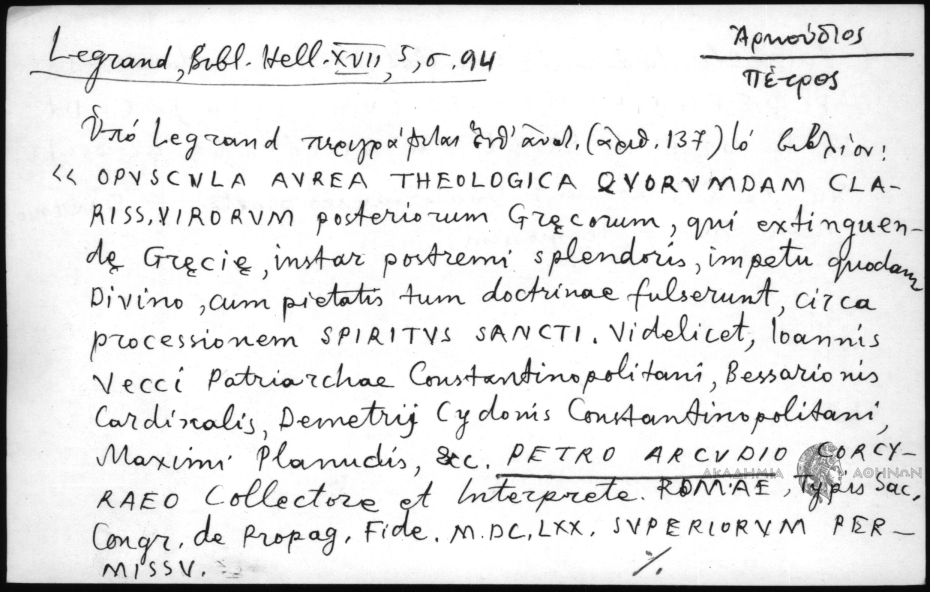 Legrand, Bibl. Hell. XVII, 5, σ. 94
Ἀρκούδιος
Πέτρος
Ὑπό Legrand περιγράφεται ἐνθ' ἀνωτ. (ἀριθ. 137) τό βιβλίον:
« OPVSCVLA AVREA THEOLOGICA QVORVMDAM CLA-
RISS. VIRORVM posteriorum Gręcorum, qui extinguen-
dę Gręcię, instar postremi splendoris, impetu quodam
Divino, cum pietatis tum doctrinae fulserunt, circa
processionem SPIRITVS SANCTI. Videlicet, Ioannis
Vecci Patriarchae Constantinopolitani, Bessarionis
Cardinalis, Demetrij Cydonis Constantinopolitani,
Maximi Planudis, &c. PETRO ARCVDIO CORCY-
ΑΚΑΔΗΜΙΑ ΑΘΗΝΩΝ
RAEO Collectore et Interprete. ROMAE, Typis Sac.
Congr. de Propag. Fide. M.DC.LXX. SVPERIORVM PER-
MISSV. %